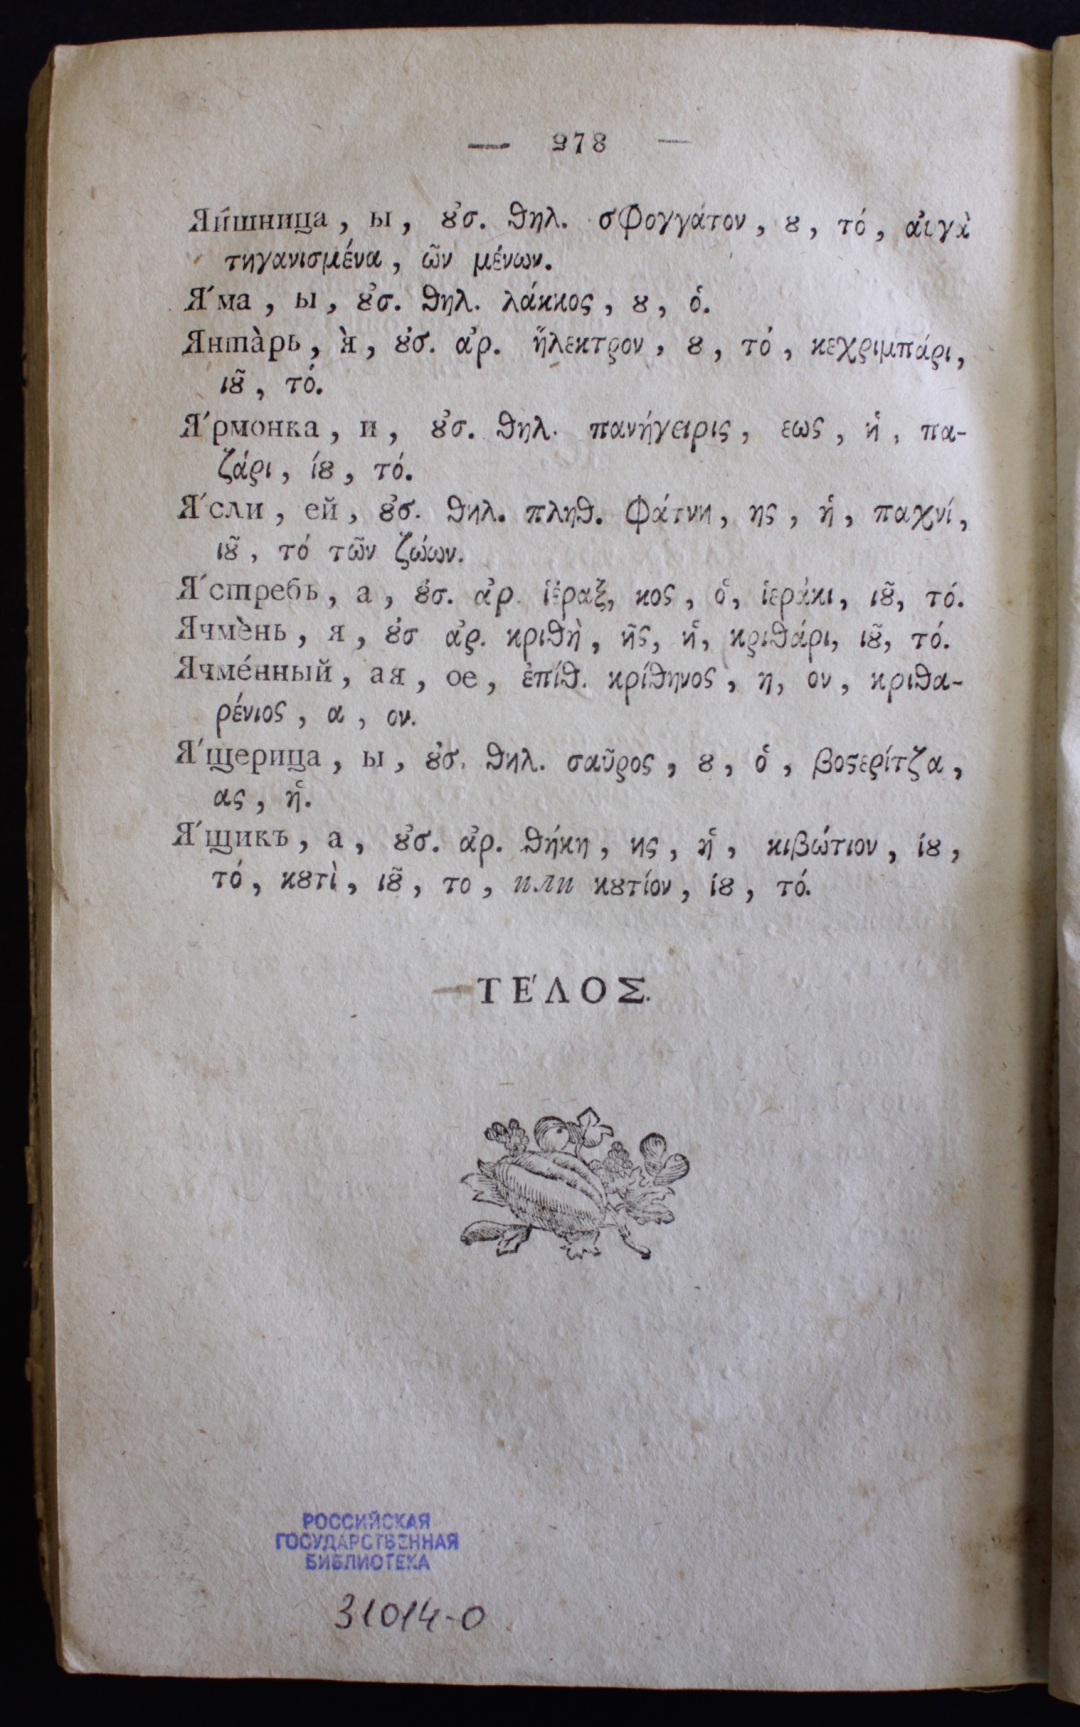 — 278 —
Яи́шница, ы, ȣ̓σ. ϑηλ. σφογγάτον, ȣ, τό, ἀιγὰ
τηγανισμένα, ῶν μένων.
Я́ма, ы, ȣ̓σ. ϑηλ. λάκκος, ȣ, ὁ.
Янта̀рь, я̀, ȣ̓σ. ἀρ. ἤλεκτρον, ȣ, τό, κεχριμπάρι,
ιȣ͂, τό.
Я́рмонка, и, ȣ̓σ. ϑηλ. πανήγειρις, εως, ἡ, πα-
ζάρι, ίȣ, τό.
Я́сли, ей, ȣ̓σ. ϑηλ. πληϑ. φάτνη, ης, ἡ, παχνί,
ιȣ͂, τό τῶν ζώων.
Я́стребь, а, ȣ̓σ. ἀρ. ἱέραξ, κος, ὁ, ἱεράκι, ιȣ͂, τό.
Ячмѐнь, я, ȣ̓σ ἀρ. κριϑὴ, ῆς, ἡ, κριϑάρι, ιȣ͂, τό.
Ячме́нный, ая, ое, ἐπίϑ. κρίϑηνος, η, ον, κριϑα-
ρένιος, α, ον.
Я́щерица, ы, ȣ̓σ. ϑηλ. σαῦρος, ȣ, ὁ, βοϛερίτζα,
ας, ἡ.
Я́щикъ, а, ȣ̓σ. ἀρ. ϑήκη, ης, ἡ, κιβώτιον, ίȣ,
τό, κȣτὶ, ιȣ͂, το, или κȣτίον, ίȣ, τό.
ΤΈΛΟΣ.
РОССИЙСКАЯ
ГОСУДАРСТВЕННАЯ
БИБЛИОТЕКА
31014-0